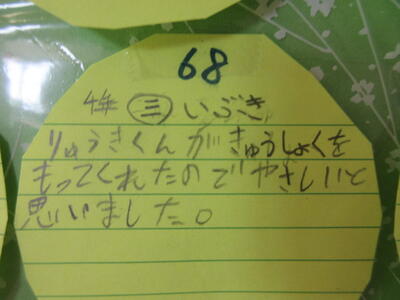 68
4年 ㊂ いぶき
りゅうきくんがきゅうしょくを
もってくれたのでやさしいと
思いました。